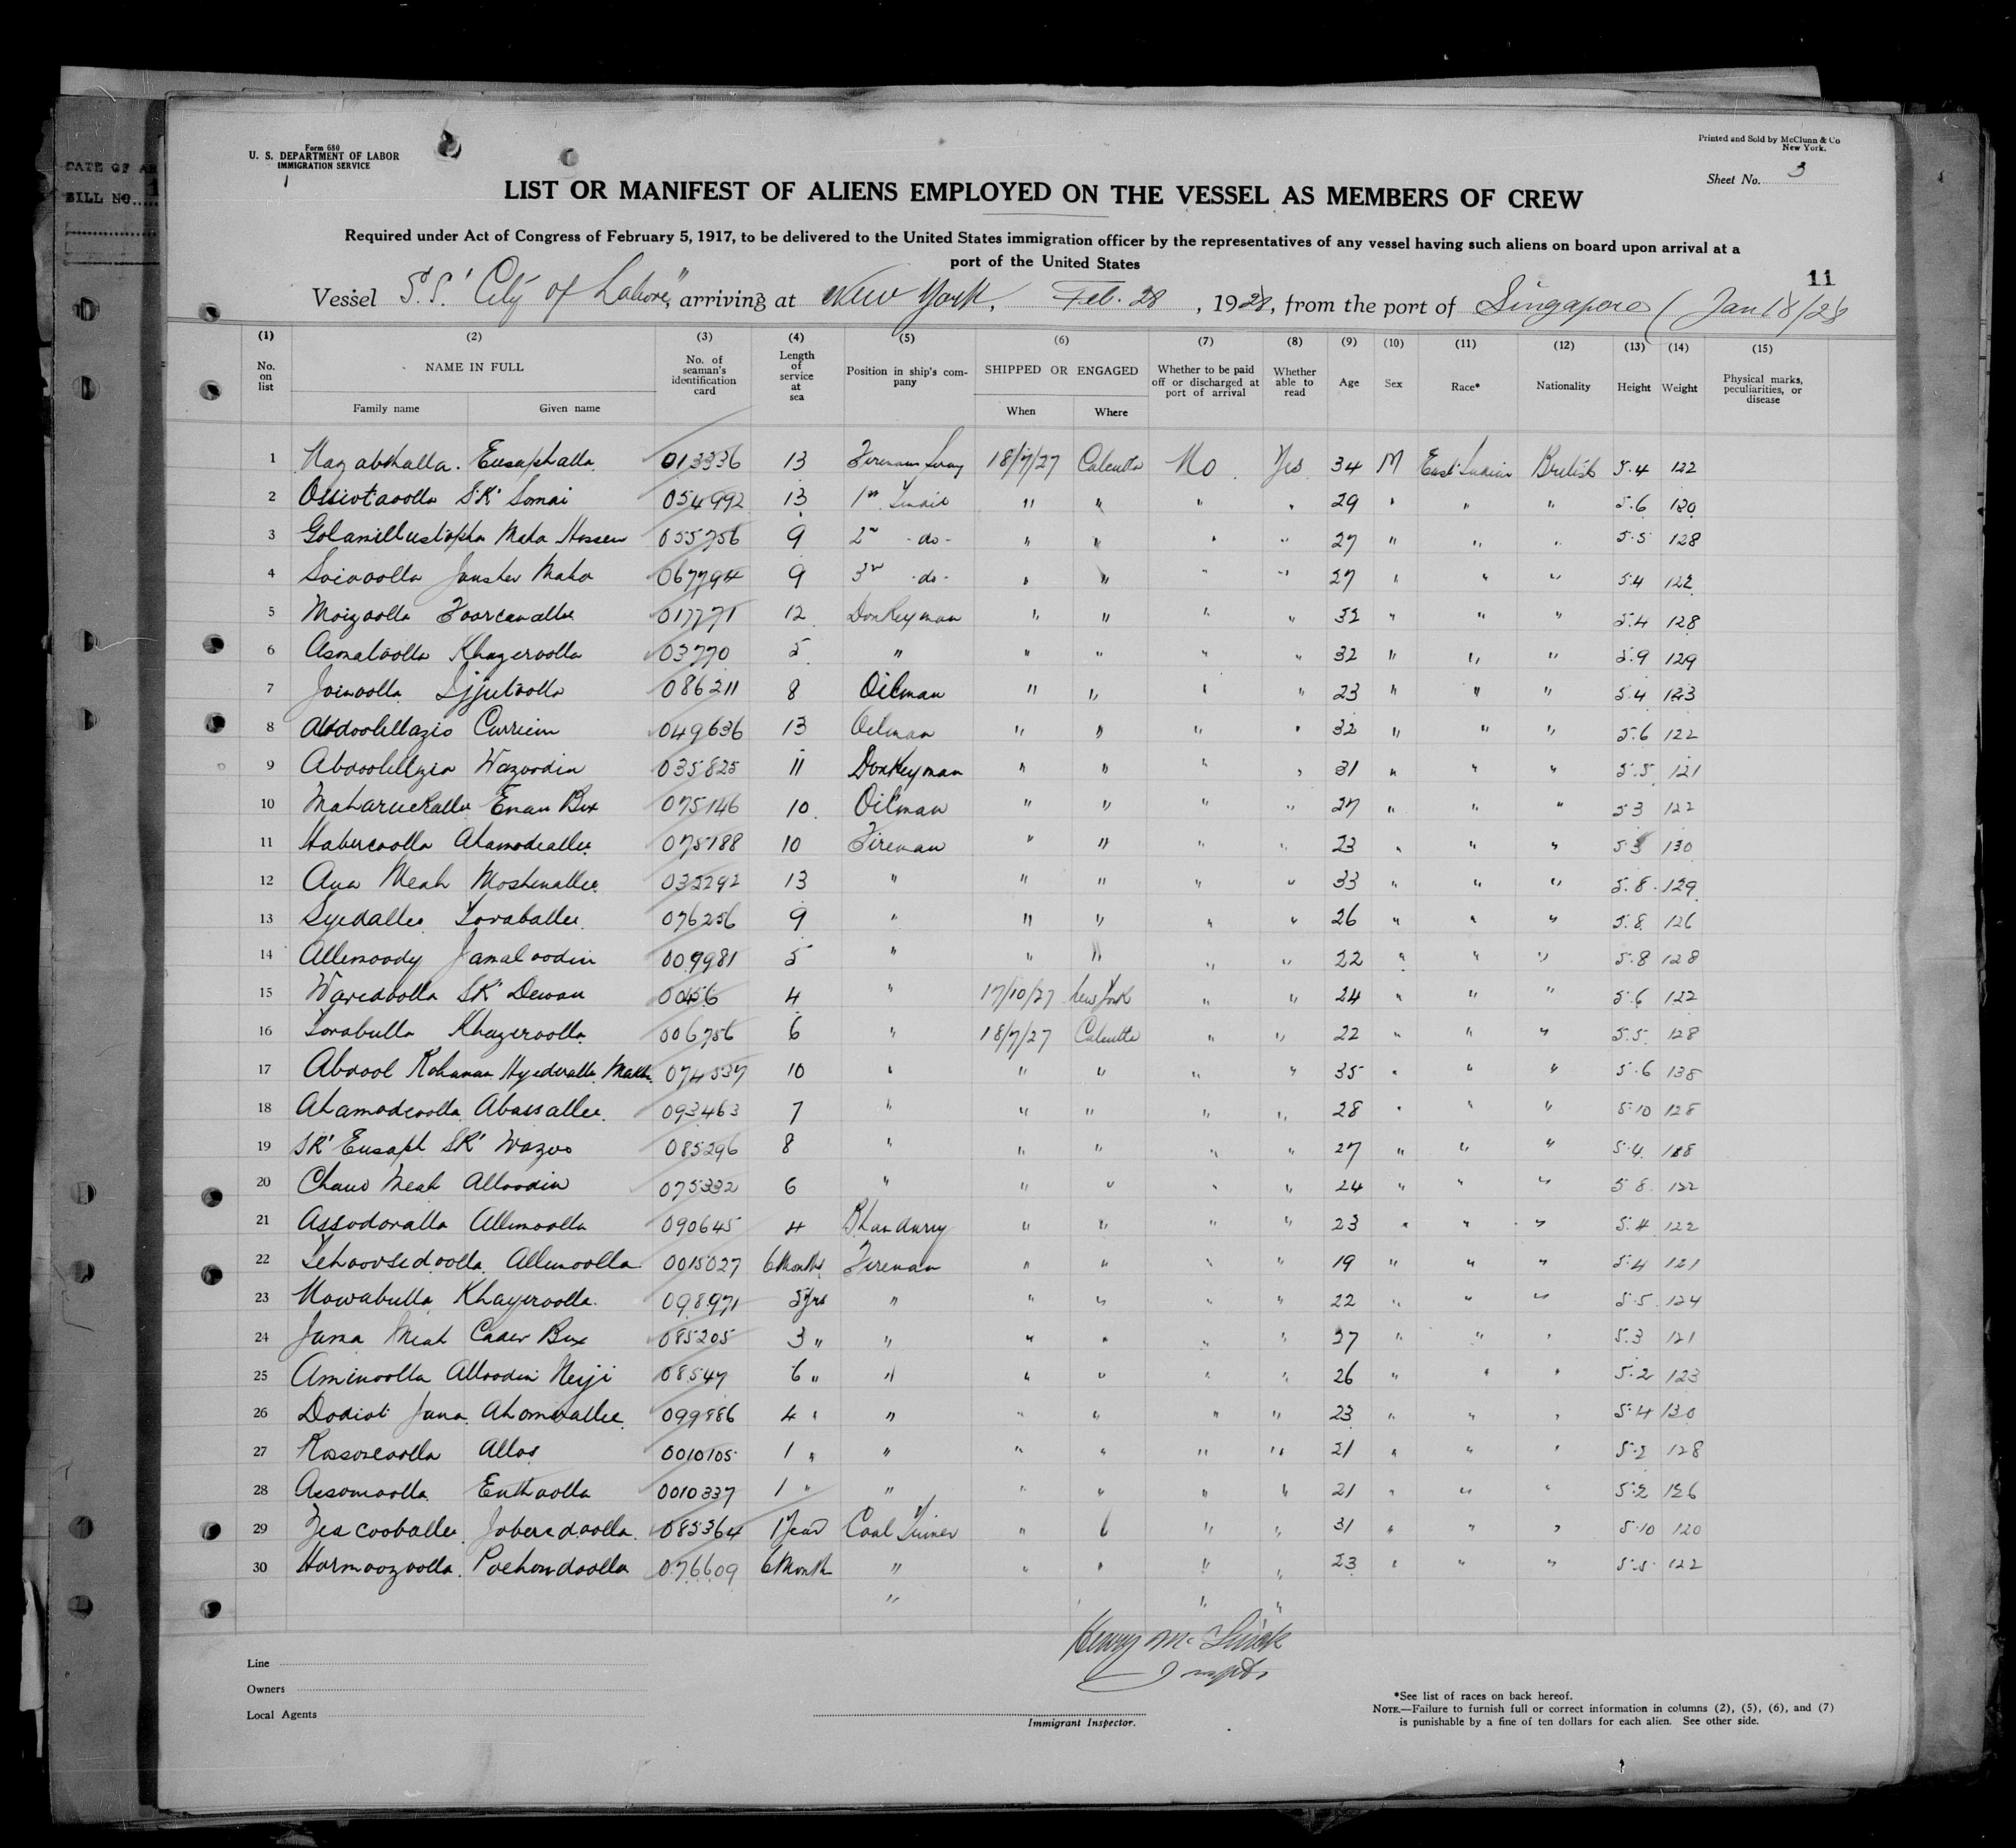 DATE OF AR
BILL NO.
Form 680
U. S. DEPARTMENT OF LABOR
IMMIGRATION SERVICE
Printed and Sold by McClunn & Co
New York.
Sheet No. 3
LIST OR MANIFEST OF ALIENS EMPLOYED ON THE VESSEL AS MEMBERS OF CREW
Required under Act of Congress of February 5, 1917, to be delivered to the United States immigration officer by the representatives of any vessel having such aliens on board upon arrival at a
port of the United States
11
Vessel S.S. "City of Lahore", arriving at New York, Feb. 28, 1928, from the port of Singapore (Jan 18/28
(1) (2) (3) (4) (5) (6) (7) (8) (9) (10) (11) (12) (13) (14) (15)
No. on list NAME IN FULL No. of seaman's identification card Length of service at sea Position in ship's company SHIPPED OR ENGAGED Whether to be paid off or discharged at port of arrival Whether able to read Age Sex Race* Nationality Height Weight Physical marks, peculiarities, or disease
Family name Given name When Where
1 Eusuphalla 013336 13 18/7/27 Calcutta No Yes 34 M East Indian British 5.4 122
2 SK Somai 054992 13 1st " " " " 29 " " " 5.6 120
3 Maho Hossen 055756 9 2nd -do- " " " " 27 " " " 5.5 128
4 Maho 067794 9 3rd -do- " " " " 27 " " " 5.4 122
5 Moizoolla 017771 12 Donkeyman " " " " 32 " " " 5.4 128
6 Asmaloolla Khazeroolla 03770 5 " " " " " 32 " " " 5.9 129
7 Joinoolla 086211 8 Oilman " " " " 23 " " " 5.4 123
8 Curriem 049636 13 Oilman " " " " 32 " " " 5.6 122
9 Wazoodin 035825 11 Donkeyman " " " " 31 " " " 5.5 121
10 Eman Bux 075146 10 Oilman " " " " 27 " " " 5 3 122
11 Haberoolla Ahamodeallee 075188 10 Fireman " " " " 23 " " " 5 3 130
12 Ava Meah Moshenallee 032292 13 " " " " " 33 " " " 5.8 129
13 Syedallee Toraballee 076256 9 " " " " " 26 " " " 5.8 126
14 Allemoody Jamaloodin 009981 5 " " " " " 22 " " " 5.8 128
15 Waredoolla SK Dewan 00456 4 " 17/10/27 New York " " 24 " " " 5.6 122
16 Torabulla Khazeroolla 006756 6 " 18/7/27 Calcutta " " 22 " " " 5.5 128
17 Abdool Rohaman 074537 10 " " " " " 35 " " " 5.6 138
18 Ahamodeoolla Abassallee 093463 7 " " " " " 28 " " " 5.10 128
19 SK Eusoph SK Wazoo 085296 8 " " " " " 27 " " " 5.4
20 Meah Alloodin 075332 6 " " " " " 24 " " " 5 8 122
21 Assodoralla Allimoolla 090645 4 Bhandarry " " " " 23 " " " 5.4 122
22 Allimoolla 0015027 6 Months Fireman " " " " 19 " " " 5.4 121
23 Nowabulla Khayeroolla 098971 5 yrs " " " " " 22 " " " 5.5 124
24 Jama Meah Cader Bux 085205 3 " " " " " " 27 " " " 5.3 121
25 Aminoolla Alloodin Neiji 08547 6 " " " " " " 26 " " " 5.2 123
26 Jana 099886 4 " " " " " " 23 " " " 5.4 130
27 Alloo 0010105 1 " " " " " " 21 " " " 5.2 128
28 Assomoolla 0010337 1 " " " " " " 21 " " " 5.2 126
29 Joberedoolla 085364 1 Year Coal " " " " 31 " " " 5.10 120
30 Hormoozoolla 076609 6 Month " " " " " 23 " " " 5.5 122
" " " "
Line
Owners
Local Agents
Immigrant Inspector.
*See list of races on back hereof.
NOTE.—Failure to furnish full or correct information in columns (2), (5), (6), and (7)
is punishable by a fine of ten dollars for each alien. See other side.